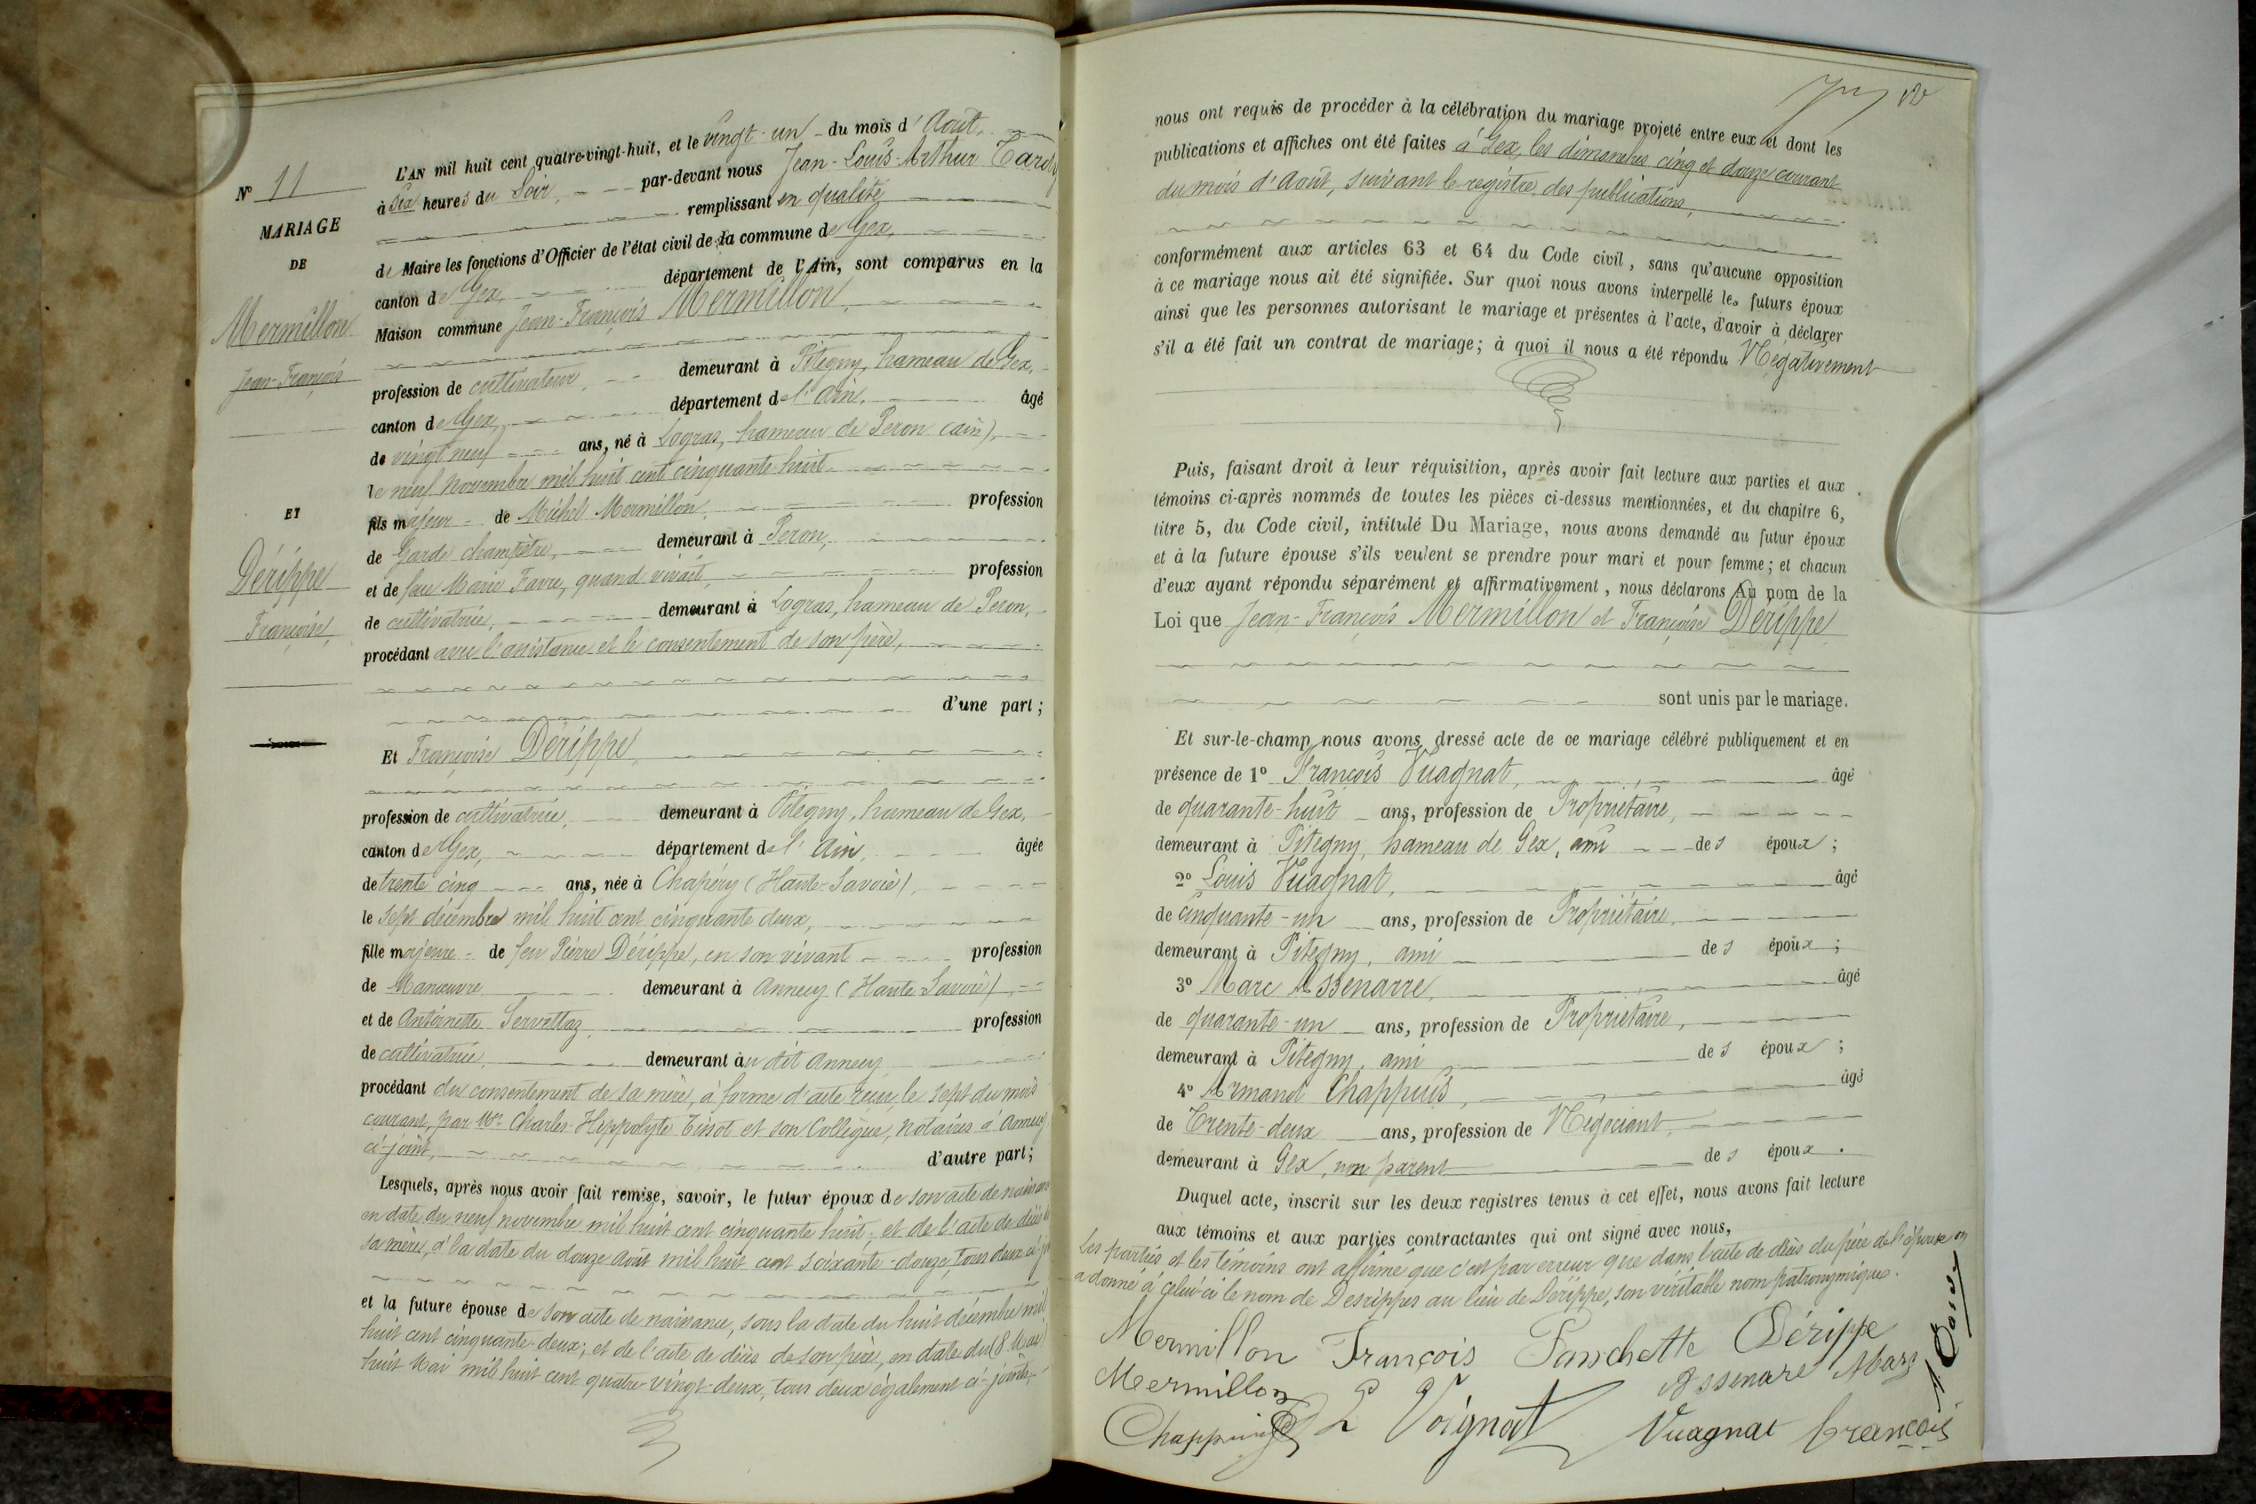 N° 11
MARIAGE
DE
Mermillon
Jean-François
ET
Dérippe
Françoise
L'AN mil huit cent quatre-vingt-huit, et le vingt-un du mois d'Août
à Six heures du Soir, par-devant nous Jean-Louis-Arthur Tardy
remplissant en qualité
de Maire les fonctions d'Officier de l'état civil de la commune de Gex,
canton de Gex, département de l'Ain, sont comparus en la
Maison commune Jean-François Mermillon,
profession de cultivateur, demeurant à Pitegny, hameau de Gex,
canton de Gex, département de l'Ain, âgé
de vingt neuf ans, né à Logras, hameau de Peron (ain),
le neuf novembre mil huit cent cinquante-huit
fils majeur de Michel Mermillon, profession
de Garde champêtre, demeurant à Peron,
et de feu Marie Favre, quand vivait, profession
de cultivatrice, demeurant à Logras, hameau de Peron,
procédant avec l'assistance et le consentement de son père,
d'une part ;
Et Françoise Dérippe,
profession de cultivatrice, demeurant à Pitegny, hameau de Gex,
canton de Gex, département de l'Ain, âgée
de trente cinq ans, née à Chapéry (Haute-Savoie),
le sept décembre mil huit cent cinquante deux,
fille majeure de feu Pierre Dérippe, en son vivant profession
de Manœuvre demeurant à Annecy (Haute Savoie),
et de Antoinette Servettaz profession
de cultivatrice, demeurant à u dit Annecy
procédant du consentement de sa mère, à forme d'acte reçu, le sept du mois
courant, par Me Charles-Hippolyte Tissot et son Collègue, notaires à Annecy
ci-joint, d'autre part ;
Lesquels, après nous avoir fait remise, savoir, le futur époux de son acte de naissance
en date du neuf novembre mil huit cent cinquante huit, et de l'acte de décès de
sa mère, à la date du douze Août mil huit cent soixante-douze, tous deux ci-joints
et la future épouse de son acte de naissance, sous la date du huit décembre mil
huit cent cinquante-deux; et de l'acte de décès de son père, en date du (8 Mai)
huit Mai mil huit cent quatre-vingt-deux, tous deux également ci-joints,
nous ont requis de procéder à la célébration du mariage projeté entre eux et dont les
publications et affiches ont été faites à Gex, les dimanches cinq et douze courant
du mois d'Août, suivant le registre des publications,
conformément aux articles 63 et 64 du Code civil, sans qu'aucune opposition
à ce mariage nous ait été signifiée. Sur quoi nous avons interpellé les futurs époux
ainsi que les personnes autorisant le mariage et présentes à l'acte, d'avoir à déclarer
s'il a été fait un contrat de mariage ; à quoi il nous a été répondu Négativement
Puis, faisant droit à leur réquisition, après avoir fait lecture aux parties et aux
témoins ci-après nommés de toutes les pièces ci-dessus mentionnées, et du chapitre 6,
titre 5, du Code civil, intitulé Du Mariage, nous avons demandé au futur époux
et à la future épouse s'ils veulent se prendre pour mari et pour femme ; et chacun
d'eux ayant répondu séparément et affirmativement, nous déclarons Au nom de la
Loi que Jean-François Mermillon et Françoise Dérippe
sont unis par le mariage.
Et sur-le-champ nous avons dressé acte de ce mariage célébré publiquement et en
présence de 1° François Vuagnat, âgé
de quarante-huit ans, profession de Propriétaire,
demeurant à Pitegny, hameau de Gex, ami des époux ;
2° Louis Vuagnat, âgé
de cinquante-un ans, profession de Propriétaire,
demeurant à Pitegny, ami des époux ;
3° Marc Assenarre, âgé
de quarante-un ans, profession de Propriétaire,
demeurant à Pitegny, ami des époux ;
4° Armand Chappuis, âgé
de Trente-deux ans, profession de Négociant,
demeurant à Gex, non parent des époux.
Duquel acte, inscrit sur les deux registres tenus à cet effet, nous avons fait lecture
aux témoins et aux parties contractantes qui ont signé avec nous,
Les parties et les témoins ont affirmé que c'est par erreur que dans l'acte de décès du père de l'épouse on
a donné à celui-ci le nom de Desrippes au lieu de Dérippe, son véritable nom patronymique.
Mermillon François Fanchette Dérippe
Mermillon Assenare Marc
Chappuis L Voignat Vuagnat françois